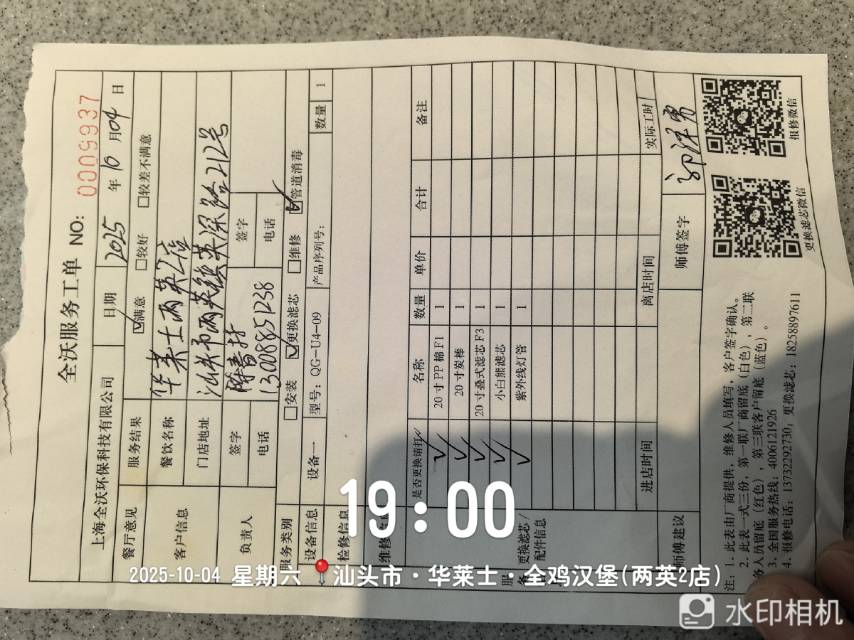 全沃服务工单 NO: 0009937
上海全沃环保科技有限公司 日期 2025 年 10 月 04 日
餐厅意见 服务结果 ☑满意 □较好 □较差不满意
客户信息 餐饮名称 华莱士两英2店
门店地址 汕头市两英镇英深路212号
负责人 签字 签字
电话 13008851238 电话
服务类别 □安装 ☑更换滤芯 □维修 ☑管道消毒
设备信息 设备一 型号: QG-U4-09 产品序列号: 数量 1
检修信息
更换滤芯/配件信息 是否更换请打✓ 名称 数量 单价 合计 备注
✓ 20寸PP棉F1 1
✓ 20寸炭棒 1
✓ 20寸叠式滤芯F3 1
✓ 小白熊滤芯 1
✓ 紫外线灯管 1
进店时间 离店时间 实际工时
师傅建议 师傅签字
更换滤芯微信
报修微信
注: 1. 此表由厂商提供, 维修人员填写, 客户签字确认。
2. 此表一式三份, 第一联厂商留底(白色), 第二联
务人员留底(红色), 第三联客户留底(蓝色)。
3. 全国服务热线: 4006121926
4. 报修电话: 13732292730, 更换滤芯: 18258897611
19:00
2025-10-04 星期六 汕头市·华莱士·全鸡汉堡(两英2店)
水印相机